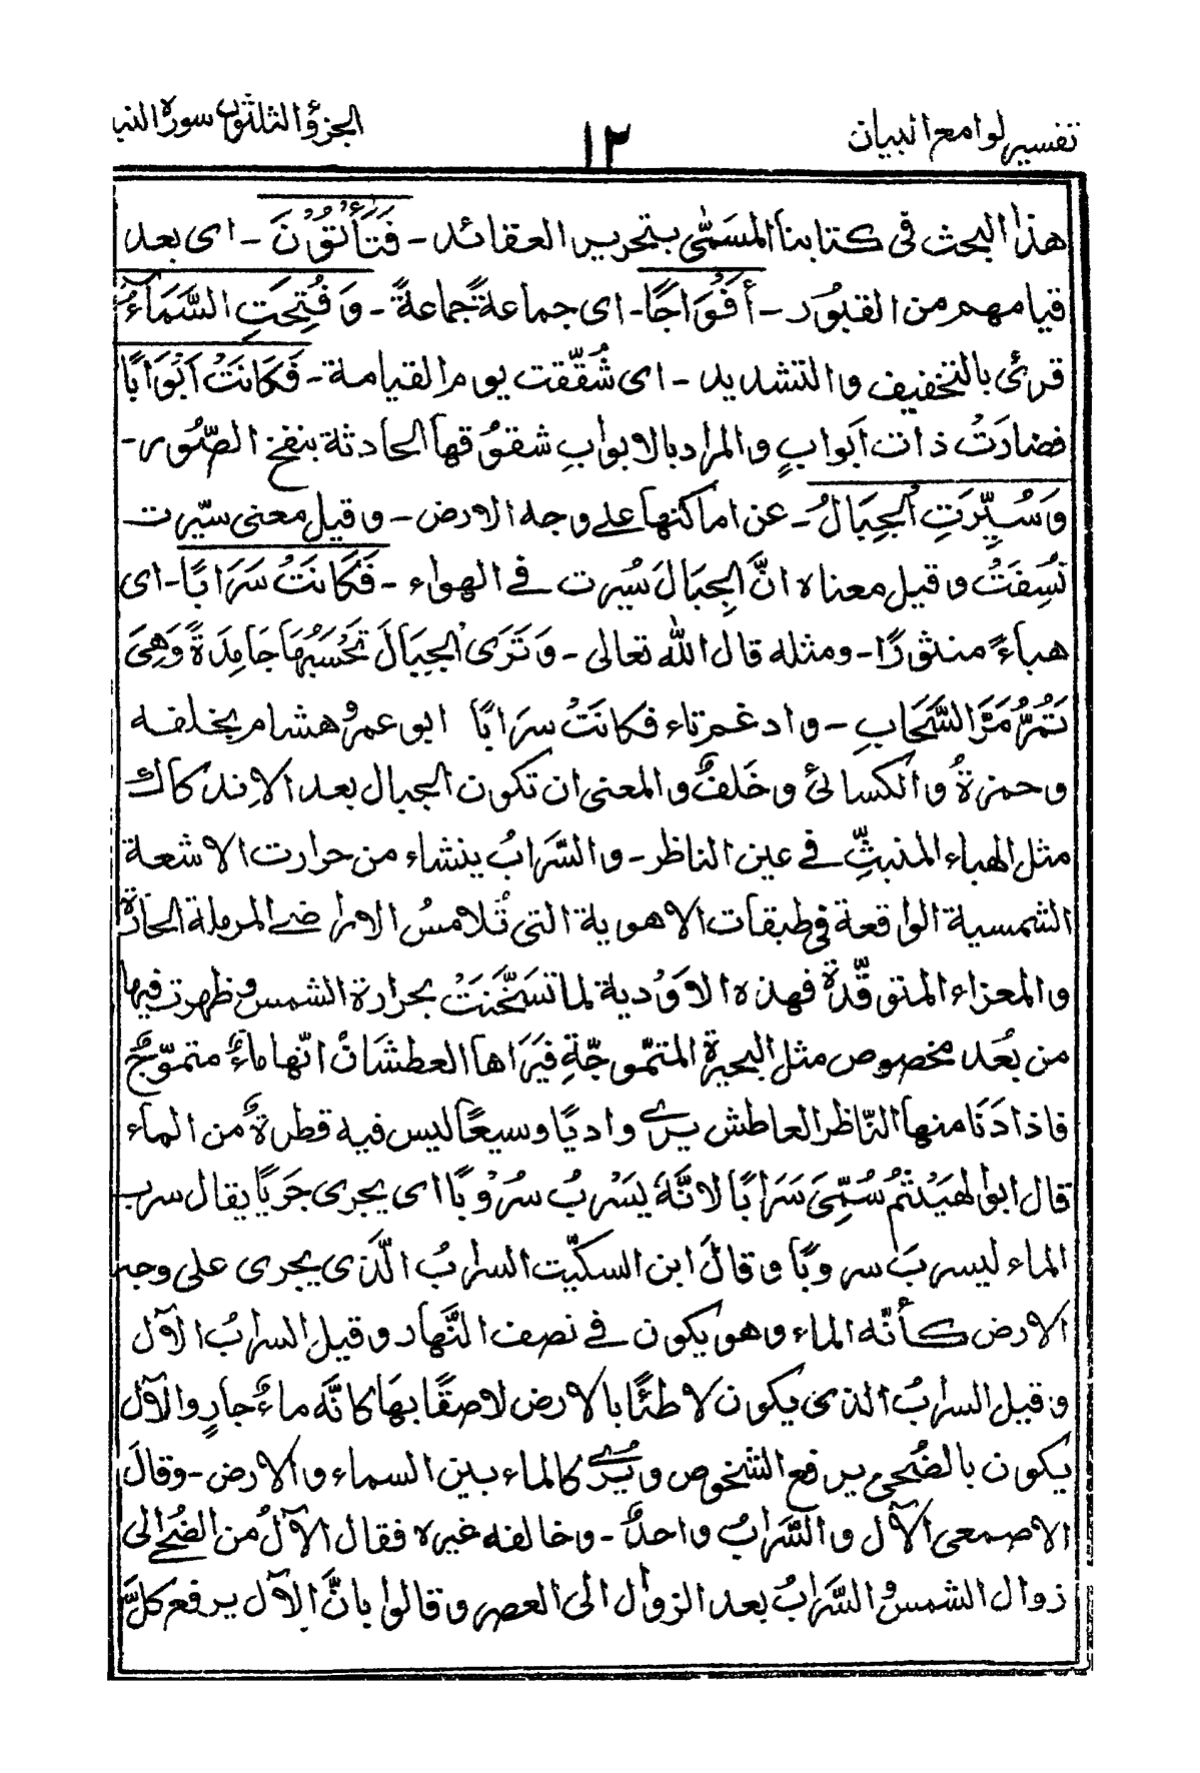 تفسير لوامع البيان
١٢
الجزؤ الثلثون سورة النبا
هذا البحث في كتابنا المسَمّٰى بتحرير العقائد - فَتَأْتُوْنَ - اى بعد
قيامهم من القبُور - أَفْوَاجًا - اى جماعةً جماعةً - وَفُتِحَتِ السَّمَآءُ
قرئ بالتخفيف والتشديد - اى شُقّقت يوم القيامة - فَكَانَتْ اَبْوَابًا
فصَارَتْ ذات اَبوابٍ والمراد بالابوابِ شقوُقها الحادثة بنفخ الصّور -
وَسُيِّرَتِ الْجِبَالُ - عن اماكنها على وجه الارض - وقيل معنى سيّرت
نُسِفَتْ وقيل معناه انَّ الجِبَالَ سُيّرت في الهواء - فَكَانَتْ سَرَابًا - اى
هباءً منثورًا - ومثله قال الله تعالى - وَتَرَى الْجِبَالَ تَحْسَبُهَا جَامِدَةً وَهِىَ
تَمُرُّ مَرَّ السَّحَابِ - وادغم تاء فكانَتْ سرَابًا ابو عمرو هشام بخلفه
وحمزةُ والكسائىُ وخَلفٌ والمعنى ان تكون الجبال بعد الاندكاك
مثل الهباء المنبثِّ في عين الناظر - والسَّرابُ ينشاء من حرارت الاشعة
الشمسية الواقعة فى طبقات الاهوية التى تُلامسُ الاراضى المرملة الحارّة
والمعزاء المتوقّدة فهذه الاوْدية لما تسَخَّنَتْ بحرارة الشمس وظهرت فيها
من بُعد مخصوص مثل البحيرة المتمّوجّةِ فيَرَاها العطشَانْ انّها ماءٌ متموّجٌ
فاذا دَنَا منها النّاظر العاطش يرى واديًا وسيعًا ليس فيه قطرةٌ من الماء
قال ابو الهَيْثمُ سُمِّىَ سَرَابًا لانَّهٗ يَسْرُبُ سُرُوْبًا اى يجرى جَريًا يقال سرب
الماء ليسربَ سروبًا وقالَ ابن السكيّت السرابُ الَّذى يجرى على وجه
الارض كأنّه الماء وهو يكون في نصف النَّهار وقيل السرابُ الآل
وقيل السرابُ الذى يكون لاطئًا بالارض لاصقًا بهَا كانَّه ماءٌ جارٍ والآل
يكون بالضُحى يرفع الشخوص ويُرى كالماء بين السماء والارض - وقالَ
الاصمعى الآل والسَّرابُ واحدٌ - وخالفه غيره فقال الآلُ من الضُحٰى الى
زوال الشمس والسَّرابُ بعد الزوال الى العصر وقالوا بانَّ الآل يرفع كلَّ